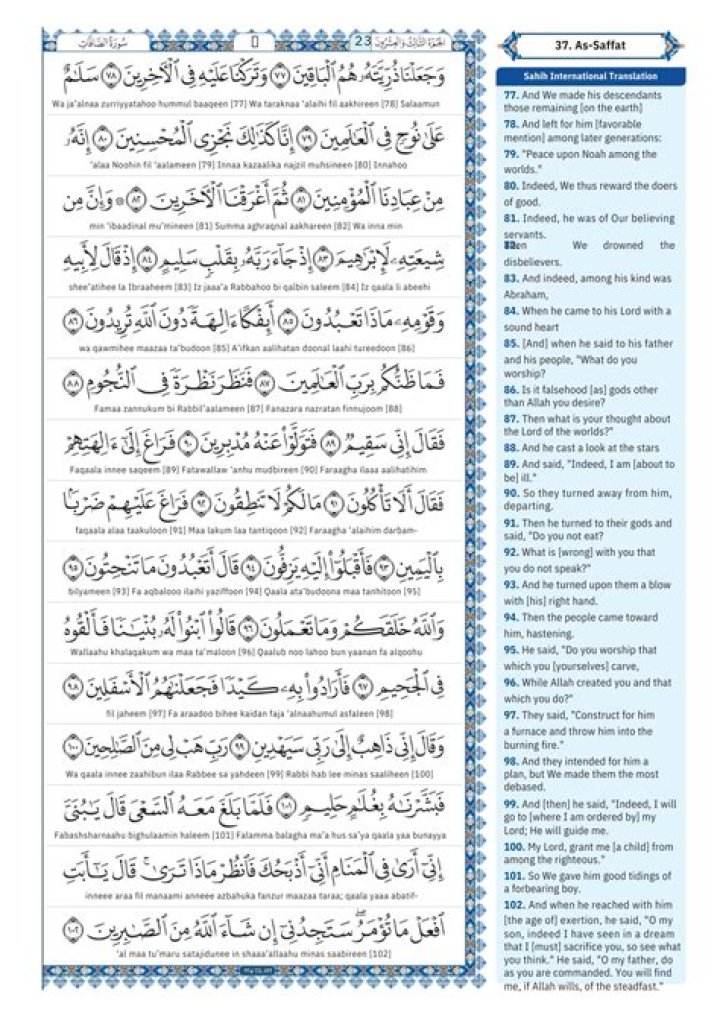 سورة الصافات
الجزء الثالث والعشرون 23
وَجَعَلْنَا ذُرِّيَّتَهُۥ هُمُ ٱلْبَاقِينَ ٧٧ وَتَرَكْنَا عَلَيْهِ فِى ٱلْءَاخِرِينَ ٧٨ سَلَٰمٌ
Wa ja'alnaa zurriyyatahoo hummul baaqeen [77] Wa taraknaa 'alaihi fil aakhireen [78] Salaamun
عَلَىٰ نُوحٍ فِى ٱلْعَٰلَمِينَ ٧٩ إِنَّا كَذَٰلِكَ نَجْزِى ٱلْمُحْسِنِينَ ٨٠ إِنَّهُۥ
'alaa Noohin fil 'aalameen [79] Innaa kazaalika najzil muhsineen [80] Innahoo
مِنْ عِبَادِنَا ٱلْمُؤْمِنِينَ ٨١ ثُمَّ أَغْرَقْنَا ٱلْءَاخَرِينَ ٨٢ ۞ وَإِنَّ مِن
min 'ibaadinal mu'mineen [81] Summa aghraqnal aakhareen [82] Wa inna min
شِيعَتِهِۦ لَإِبْرَٰهِيمَ ٨٣ إِذْ جَآءَ رَبَّهُۥ بِقَلْبٍ سَلِيمٍ ٨٤ إِذْ قَالَ لِأَبِيهِ
shee'atihee la Ibraaheem [83] Iz jaaa'a Rabbahoo bi qalbin saleem [84] Iz qaala li abeehi
وَقَوْمِهِۦ مَاذَا تَعْبُدُونَ ٨٥ أَئِفْكًا ءَالِهَةً دُونَ ٱللَّهِ تُرِيدُونَ ٨٦
wa qawmihee maazaa ta'budoon [85] A'ifkan aalihatan doonal laahi tureedoon [86]
فَمَا ظَنُّكُم بِرَبِّ ٱلْعَٰلَمِينَ ٨٧ فَنَظَرَ نَظْرَةً فِى ٱلنُّجُومِ ٨٨
Famaa zannukum bi Rabbil'aalameen [87] Fanazara nazratan finnujoom [88]
فَقَالَ إِنِّى سَقِيمٌ ٨٩ فَتَوَلَّوْا۟ عَنْهُ مُدْبِرِينَ ٩٠ فَرَاغَ إِلَىٰٓ ءَالِهَتِهِمْ
Faqaala innee saqeem [89] Fatawallaw 'anhu mudbireen [90] Faraagha ilaaa aalihatihim
فَقَالَ أَلَا تَأْكُلُونَ ٩١ مَا لَكُمْ لَا تَنطِقُونَ ٩٢ فَرَاغَ عَلَيْهِمْ ضَرْبًۢا
faqaala alaa taakuloon [91] Maa lakum laa tantiqoon [92] Faraagha 'alaihim darbam-
بِٱلْيَمِينِ ٩٣ فَأَقْبَلُوٓا۟ إِلَيْهِ يَزِفُّونَ ٩٤ قَالَ أَتَعْبُدُونَ مَا تَنْحِتُونَ ٩٥
bilyameen [93] Fa aqbalooo ilaihi yaziffoon [94] Qaala ata'budoona maa tanhitoon [95]
وَٱللَّهُ خَلَقَكُمْ وَمَا تَعْمَلُونَ ٩٦ قَالُوا۟ ٱبْنُوا۟ لَهُۥ بُنْيَٰنًا فَأَلْقُوهُ
Wallaahu khalaqakum wa maa ta'maloon [96] Qaalub noo lahoo bun yaanan fa alqoohu
فِى ٱلْجَحِيمِ ٩٧ فَأَرَادُوا۟ بِهِۦ كَيْدًا فَجَعَلْنَٰهُمُ ٱلْأَسْفَلِينَ ٩٨
fil jaheem [97] Fa araadoo bihee kaidan faja 'alnaahumul asfaleen [98]
وَقَالَ إِنِّى ذَاهِبٌ إِلَىٰ رَبِّى سَيَهْدِينِ ٩٩ رَبِّ هَبْ لِى مِنَ ٱلصَّٰلِحِينَ ١٠٠
Wa qaala innee zaahibun ilaa Rabbee sa yahdeen [99] Rabbi hab lee minas saaliheen [100]
فَبَشَّرْنَٰهُ بِغُلَٰمٍ حَلِيمٍ ١٠١ فَلَمَّا بَلَغَ مَعَهُ ٱلسَّعْىَ قَالَ يَٰبُنَىَّ
Fabashsharnaahu bighulaamin haleem [101] Falamma balagha ma'a hus sa'ya qaala yaa bunayya
إِنِّىٓ أَرَىٰ فِى ٱلْمَنَامِ أَنِّىٓ أَذْبَحُكَ فَٱنظُرْ مَاذَا تَرَىٰ ۚ قَالَ يَٰٓأَبَتِ
inneee araa fil manaami anneee azbahuka fanzur maazaa taraa; qaala yaaa abatif-
ٱفْعَلْ مَا تُؤْمَرُ ۖ سَتَجِدُنِىٓ إِن شَآءَ ٱللَّهُ مِنَ ٱلصَّٰبِرِينَ ١٠٢
'al maa tu'maru satajidunee in shaaa'allaahu minas saabireen [102]
37. As-Saffat
Sahih International Translation
77. And We made his descendants
those remaining [on the earth]
78. And left for him [favorable
mention] among later generations:
79. "Peace upon Noah among the
worlds."
80. Indeed, We thus reward the doers
of good.
81. Indeed, he was of Our believing
servants.
We drowned the
disbelievers.
83. And indeed, among his kind was
Abraham,
84. When he came to his Lord with a
sound heart
85. [And] when he said to his father
and his people, "What do you
worship?
86. Is it falsehood [as] gods other
than Allah you desire?
87. Then what is your thought about
the Lord of the worlds?"
88. And he cast a look at the stars
89. And said, "Indeed, I am [about to
be] ill."
90. So they turned away from him,
departing.
91. Then he turned to their gods and
said, "Do you not eat?
92. What is [wrong] with you that
you do not speak?"
93. And he turned upon them a blow
with [his] right hand.
94. Then the people came toward
him, hastening.
95. He said, "Do you worship that
which you [yourselves] carve,
96. While Allah created you and that
which you do?"
97. They said, "Construct for him
a furnace and throw him into the
burning fire."
98. And they intended for him a
plan, but We made them the most
debased.
99. And [then] he said, "Indeed, I will
go to [where I am ordered by] my
Lord; He will guide me.
100. My Lord, grant me [a child] from
among the righteous."
101. So We gave him good tidings of
a forbearing boy.
102. And when he reached with him
[the age of] exertion, he said, "O my
son, indeed I have seen in a dream
that I [must] sacrifice you, so see what
you think." He said, "O my father, do
as you are commanded. You will find
me, if Allah wills, of the steadfast."